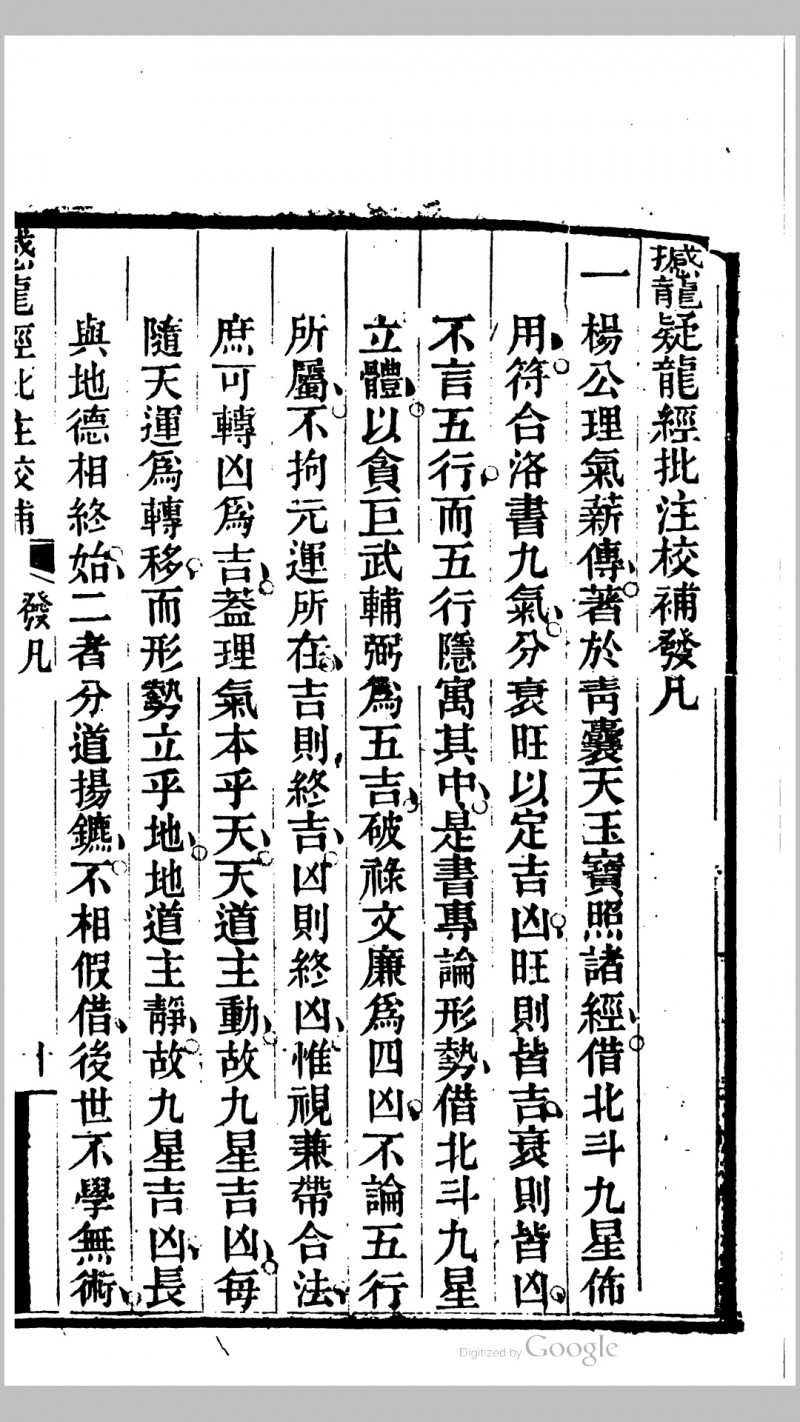 撼龍疑龍經批注校補發凡
一楊公理氣薪傳著於靑囊天玉寶照諸經借北斗九星佈
用符合洛書九氣分衰旺以定吉凶旺則皆吉衰則皆凶
不言五行而五行隱寓其中是書專論形勢借北斗九星
立體以貪巨武輔弼爲五吉破祿文廉爲四凶不論五行
所屬不拘元運所在吉則終吉凶則終凶惟視兼帶合法
庶可轉凶爲吉蓋理氣本乎天天道主動故九星吉凶每
隨天運爲轉移而形勢立乎地地道主靜故九星吉凶長
與地德相終始二者分道揚鑣不相假借後世不學無術
撼龍經批注校補 發凡 十
Digitized by Google